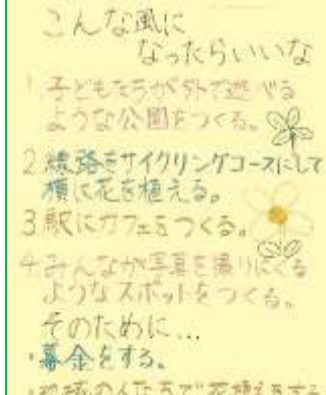 こんな風に
なったらいいな
1.子どもたちが外で遊べる
ような公園をつくる。
2.線路をサイクリングコースにして
横に花を植える。
3.駅にカフェをつくる。
4.みんなが写真を撮りにくる
ようなスポットをつくる。
そのために…
・募金をする。
・地域の人たちで花植えをする